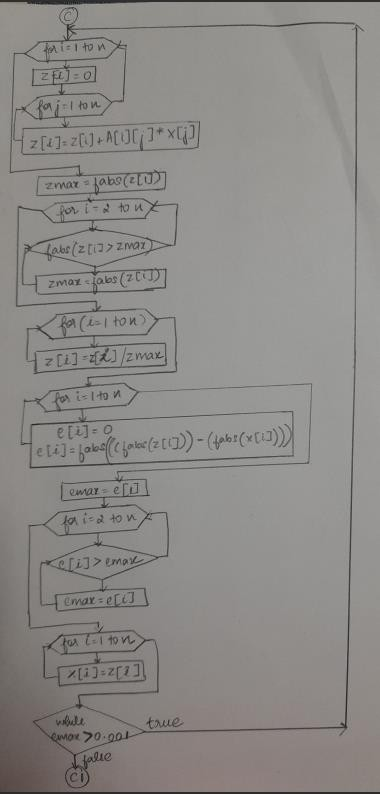 C
for i=1 to n
z[i]=0
for j=1 to n
z[i]=z[i]+A[i][j]*x[j]
zmax=fabs(z[1])
for i=2 to n
fabs(z[i]>zmax)
zmax=fabs(z[i])
for(i=1 to n)
z[i]=z[i]/zmax
for i=1 to n
e[i]=0
e[i]=fabs((fabs(z[i]))-(fabs(x[i])))
emax=e[i]
for i=2 to n
e[i]>emax
emax=e[i]
for i=1 to n
x[i]=z[i]
while
emax>0.001
true
false
C1